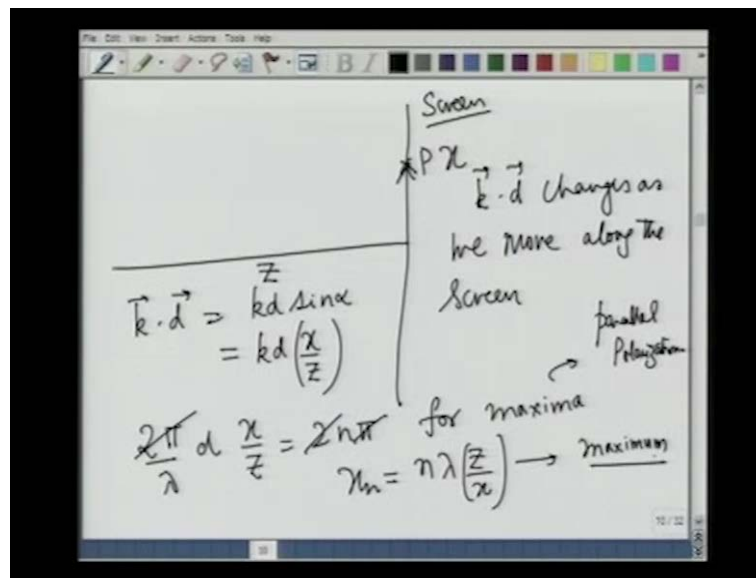 File Edit View Insert Actions Tools Help
B I
Screen
P x
k⃗ · d⃗ changes as
we move along the
Screen
z
k⃗ · d⃗ = kd sinα
= kd (x/z)
parallel
Polarization
2π/λ d x/z = 2nπ for maxima
xₙ = nλ (z/x) → maximum
10/32